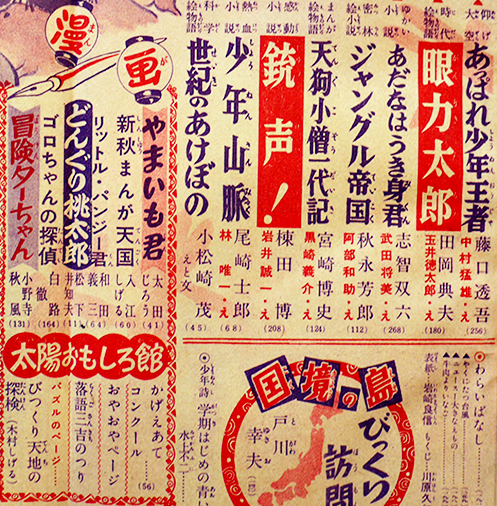 あっぱれ少年王者
藤口透吾
中村猛雄・え
(256)
眼力太郎
田岡典夫
玉井徳太郎・え
(180)
あだなはうき身君
志智双六
武田将美・え
(268)
ジャングル帝国
秋永芳郎
阿部和助・え
(112)
天狗小僧一代記
宮崎博史
黒崎義介・え
(124)
銃声!
棟田博
岩井誠一・え
(208)
少年山脈
尾崎士郎
林唯一・え
(68)
世紀のあけぼの
小松崎茂
えと文
(45)
漫画
やまいも君
太田じろう
(152)
新秋まんが天国
入江しげる
リットル・バンジー君
和田義三
どんぐり桃太郎
ゴロちゃんの探偵
白路徹
(164)
冒険ターちゃん
小野秋風
(131)
太陽おもしろ館
かげえあて
コンクール
おやおやページ
(56)
落語三吉のつり
パズルのページ
びっくり天地の
探検
(木村しげる)
◎わらいばなし
表紙・岩崎良信
もくじ・川原久
国境の島
びっくり
訪問
戸川幸夫
◎少年詩・学期はじめの青い